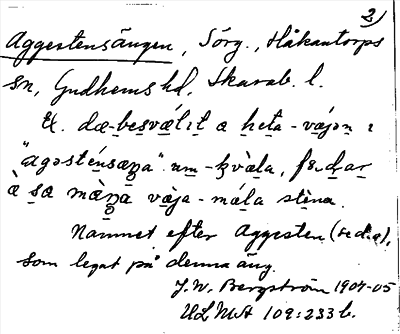 2)
Aggestensängen, Sörg., Håkantorps
sn, Gudhems hd, Skarab. l.
tɩ. dæ-besvǽlɩt a heta-vájən ɩ
"agəsténsæŋa". um-kvæ̀la, fɛ. dar
æ̀ sa mæ̀ŋa vàja-mála stèna.
Namnet efter Aggesten (se d.o.),
som legat på denna äng.
J.W. Bergström 1904-05
ULMA 109:233 b.